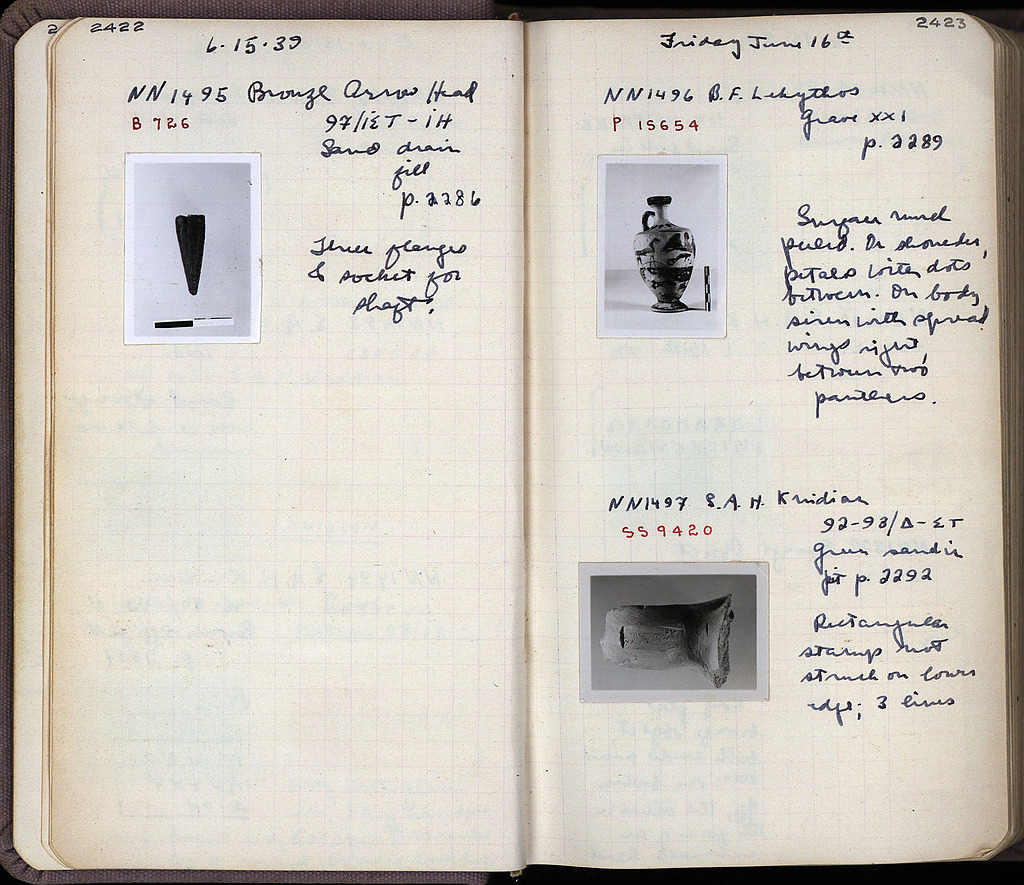 2422
6·15·39
NN1495 Bronze Arrow Head
B 726
97/ΙΣΤ-ΙΗ
Sand drain
fill
p. 2286
Three flanges
& socket for
shaft.
2423
Friday June 16th
NN1496 B.F. Lekythos
P 15654
Grave XXI
p. 2289
Surface much
peeled. On shoulder,
petals with dots
between. On body,
siren with spread
wings right,
between two
panthers.
NN1497 S.A.H. Knidian
SS 9420
92-93/Δ-ΣΤ
Green sand in
pit p. 2292
Rectangular
stamp not
struck on lower
edge; 3 lines